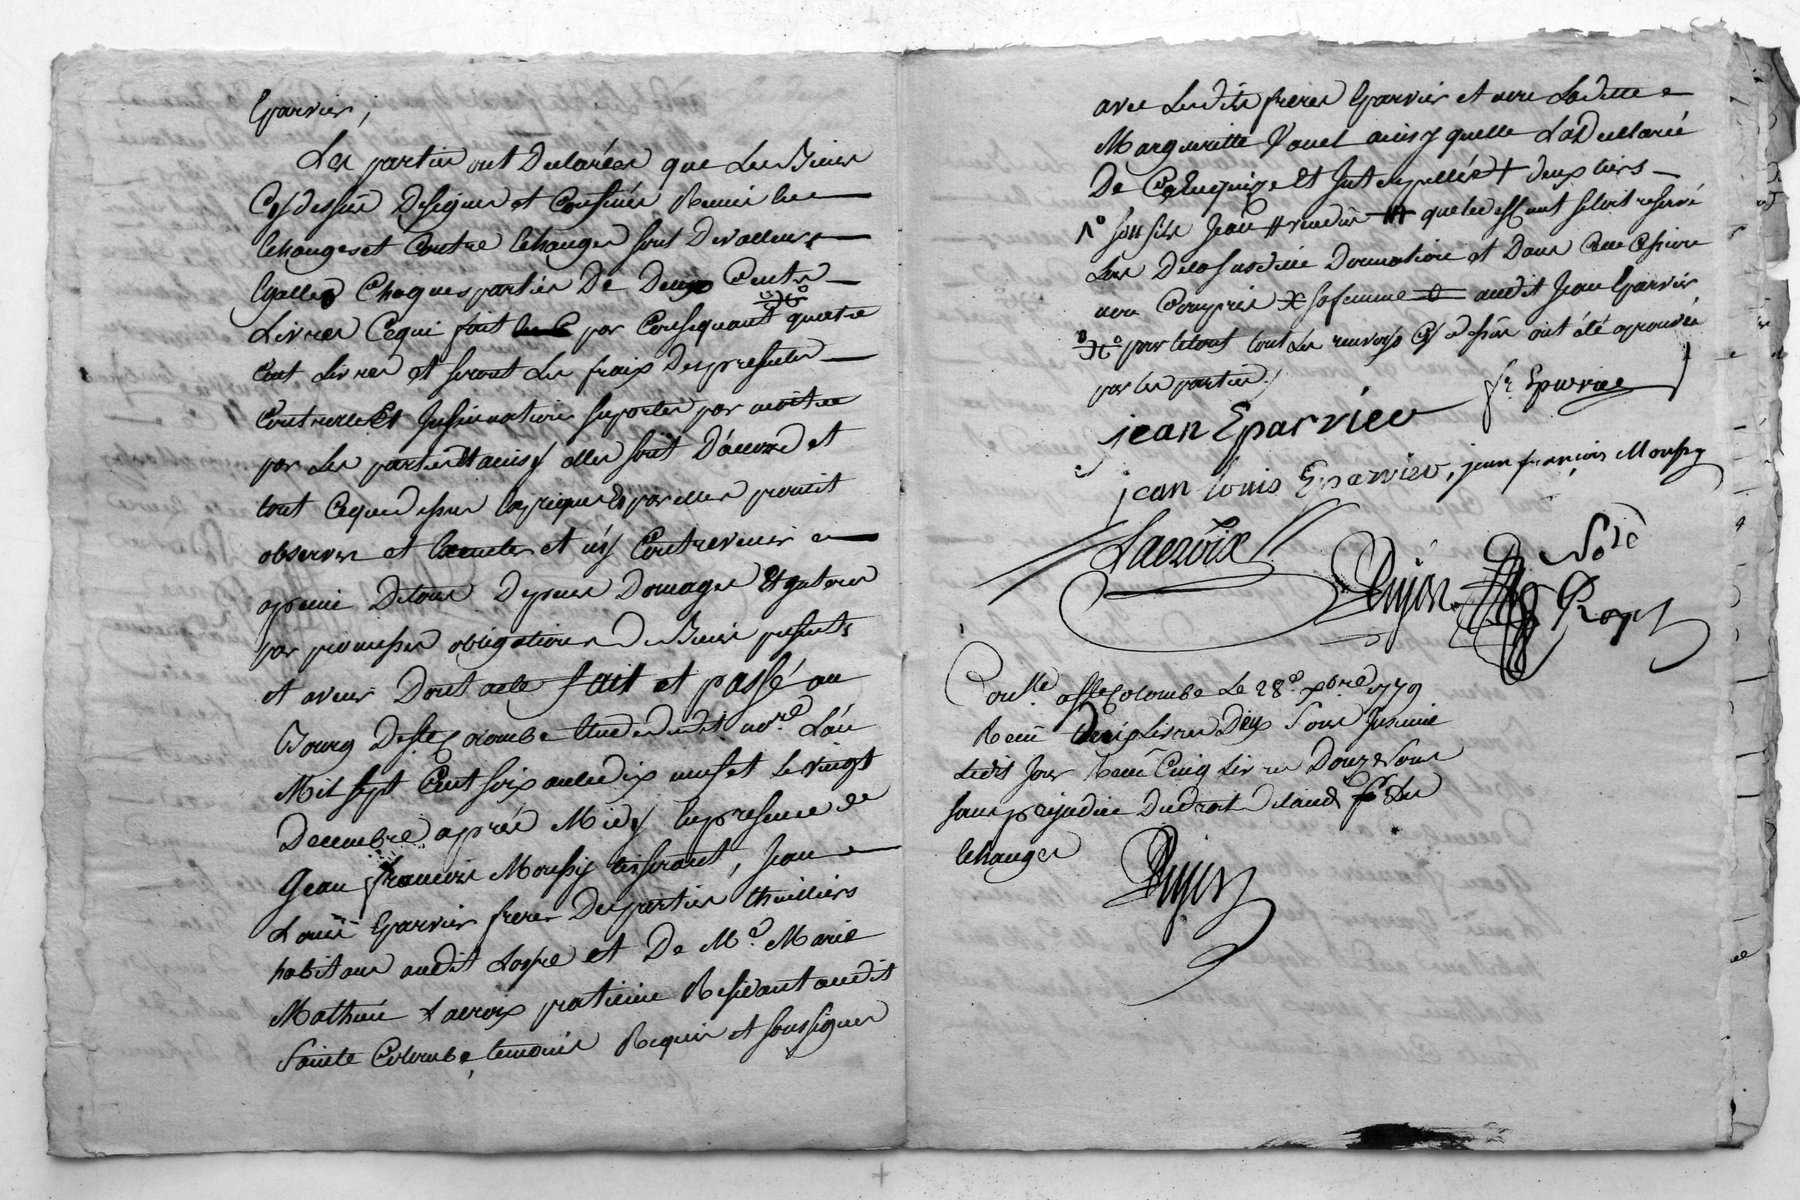 Eparvier ;
Les parties ont Declarées que Les Biens
Cy dessus Designes et Confinés Remis en
Echanges et Contre Echanges sont De valleurs
Egalles Chaques parties De Deux Cents
Livres Ce qui fait par Consequant quatre
Cent Livres et seront Les fraix Des presentes
Controlle Et Insinuation suportes par moitié
par Les parties Et ainsy elles sont D'acord et
tout Ce que dessus Expliques par elles promit
observer et Executer et n'y Contrevenir a
apeine De tous Depens Domages Et interes
par promesses obligations De Biens presents
et avenir Dont acte fait et passé au
Bourg De Ste Colombe Etude dudit nore. L'an
Mil sept Cent soixante dix neuf et Le vingt
Decembre après Midy En presence de
Jean francois Moussy tisserant, Jean
Louis Eparvier frere Des parties thuilliers
habitans audit Lospre et De Me. Marie
Mathieu Lacroix praticien Residant audit
Sainte Colombe temoins Requis et soussignes
avec Lesdits freres Eparvier et non Laditte
Margueritte Vanel ainsy quelle L'a Declarée
De Ce Enquize Et Interpellée + deux tiers
son fils Jean # vendus quelle est sont se soit reservé
Lors De la susditte Donnation et Dans
non Compris X sa femme audit Jean Eparvier
pour Letout tout Les renvois Cy dessus ont été aprouvés
par les parties ./.
fr Eparvier
jean Eparvier
jean louis Eparvier, jean françois Moussy
Lacroix
Dujon
Nore
Roy
Conlle. a Ste Colombe Le 28e. xbre 1779
Recu trois Livres Dix Sous Insinué
Ledit Jour Recu Cinq Livres Douze Sous
sans prejudice Du Droit
Echanges
Dujon